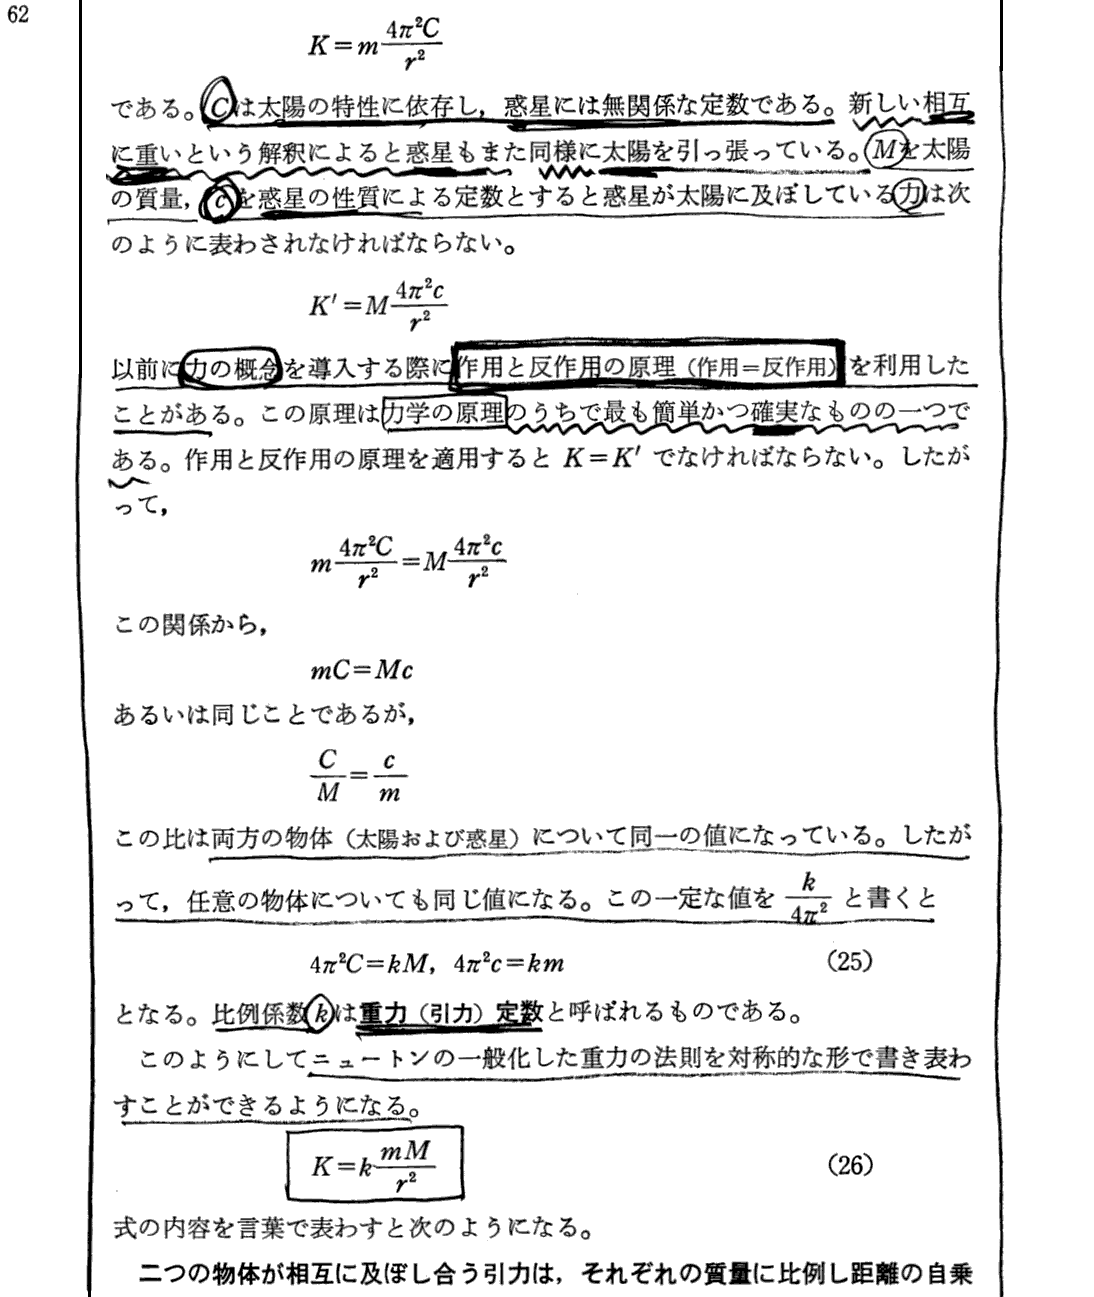 62
K=m 4π²C/r²
である。Cは太陽の特性に依存し，惑星には無関係な定数である。新しい相互
に重いという解釈によると惑星もまた同様に太陽を引っ張っている。Mを太陽
の質量，cを惑星の性質による定数とすると惑星が太陽に及ぼしている力は次
のように表わされなければならない。
K′=M 4π²c/r²
以前に力の概念を導入する際に作用と反作用の原理（作用＝反作用）を利用した
ことがある。この原理は力学の原理のうちで最も簡単かつ確実なものの一つで
ある。作用と反作用の原理を適用すると K=K′ でなければならない。したが
って，
m 4π²C/r² = M 4π²c/r²
この関係から，
mC=Mc
あるいは同じことであるが，
C/M = c/m
この比は両方の物体（太陽および惑星）について同一の値になっている。したが
って，任意の物体についても同じ値になる。この一定な値を k/4π² と書くと
4π²C=kM, 4π²c=km (25)
となる。比例係数kは重力（引力）定数と呼ばれるものである。
このようにしてニュートンの一般化した重力の法則を対称的な形で書き表わ
すことができるようになる。
K=k mM/r² (26)
式の内容を言葉で表わすと次のようになる。
二つの物体が相互に及ぼし合う引力は，それぞれの質量に比例し距離の自乗